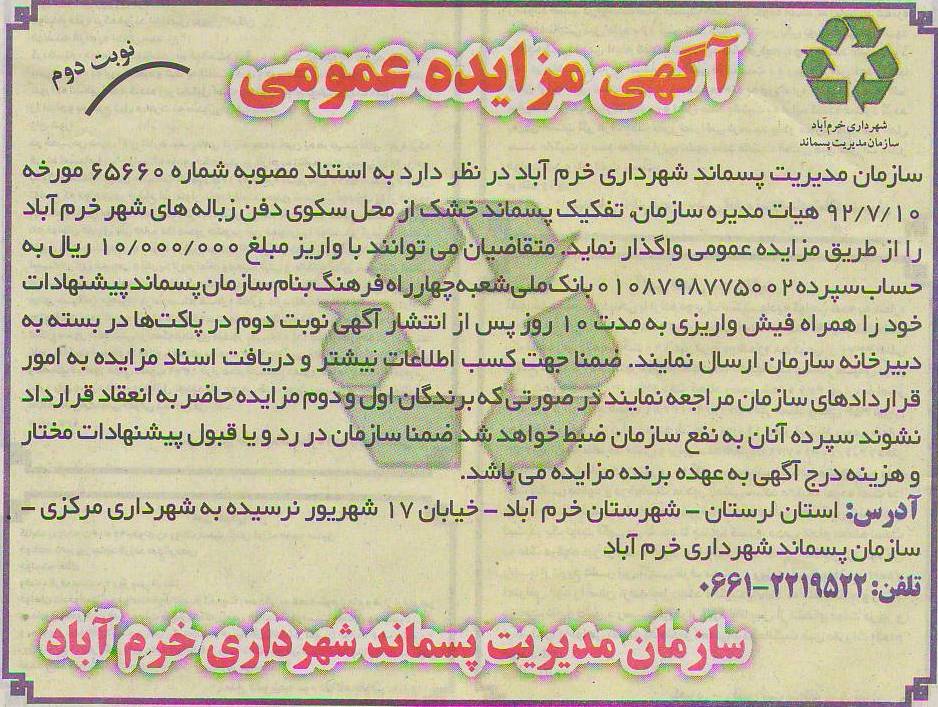 شهرداری خرم‌آباد
سازمان مدیریت پسماند
آگهی مزایده عمومی
نوبت دوم
سازمان مدیریت پسماند شهرداری خرم آباد در نظر دارد به استناد مصوبه شماره ۶۵۶۶۰ مورخه
۹۲/۷/۱۰ هیات مدیره سازمان، تفکیک پسماند خشک از محل سکوی دفن زباله های شهر خرم آباد
را از طریق مزایده عمومی واگذار نماید. متقاضیان می توانند با واریز مبلغ ۱۰/۰۰۰/۰۰۰ ریال به
حساب سپرده ۰۱۰۸۷۹۸۷۷۵۰۰۲ بانک ملی شعبه چهارراه فرهنگ بنام سازمان پسماند پیشنهادات
خود را همراه فیش واریزی به مدت ۱۰ روز پس از انتشار آگهی نوبت دوم در پاکت‌ها در بسته به
دبیرخانه سازمان ارسال نمایند. ضمنا جهت کسب اطلاعات بیشتر و دریافت اسناد مزایده به امور
قراردادهای سازمان مراجعه نمایند در صورتی که برندگان اول و دوم مزایده حاضر به انعقاد قرارداد
نشوند سپرده آنان به نفع سازمان ضبط خواهد شد ضمنا سازمان در رد و یا قبول پیشنهادات مختار
و هزینه درج آگهی به عهده برنده مزایده می باشد.
آدرس: استان لرستان - شهرستان خرم آباد - خیابان ۱۷ شهریور نرسیده به شهرداری مرکزی -
سازمان پسماند شهرداری خرم آباد
تلفن: ۲۲۱۹۵۲۲-۰۶۶۱
سازمان مدیریت پسماند شهرداری خرم آباد